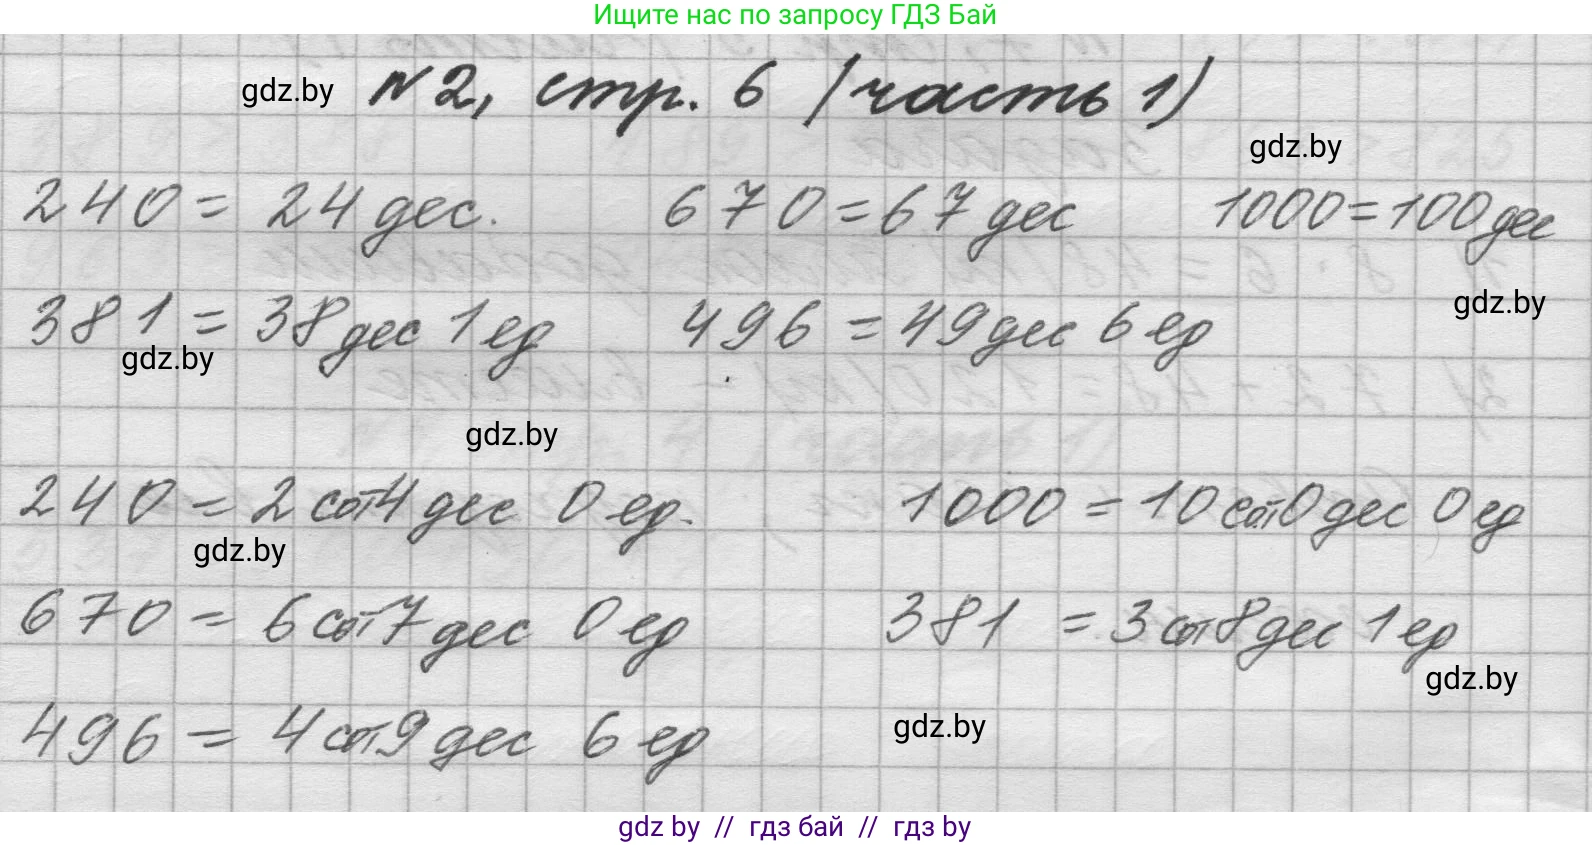 Ищите нас по запросу ГДЗ Бай
gdz.by №2, стр. 6 (часть 1)
gdz.by
240 = 24 дес. 670 = 67 дес 1000 = 100 дес
gdz.by
381 = 38 дес 1 ед 496 = 49 дес 6 ед
gdz.by
gdz.by
240 = 2 сот 4 дес 0 ед. 1000 = 10 сот 0 дес 0 ед
gdz.by
670 = 6 сот 7 дес 0 ед 381 = 3 сот 8 дес 1 ед
gdz.by
496 = 4 сот 9 дес 6 ед gdz.by
gdz by // гдз бай // гдз by